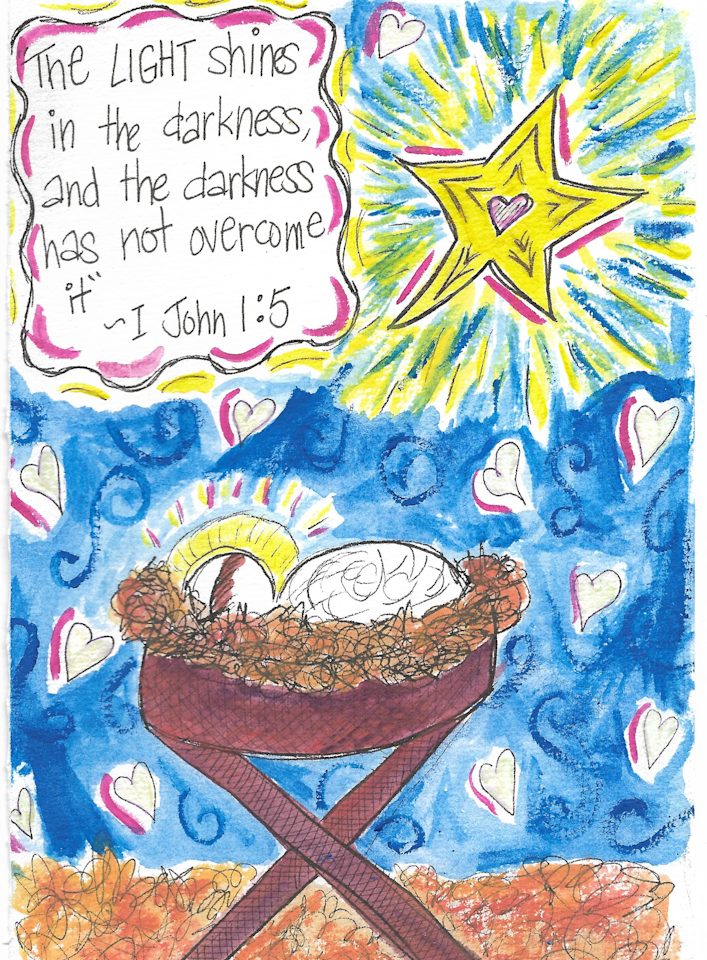 The LIGHT shines
in the darkness,
and the darkness
has not overcome
it"
~I John 1:5